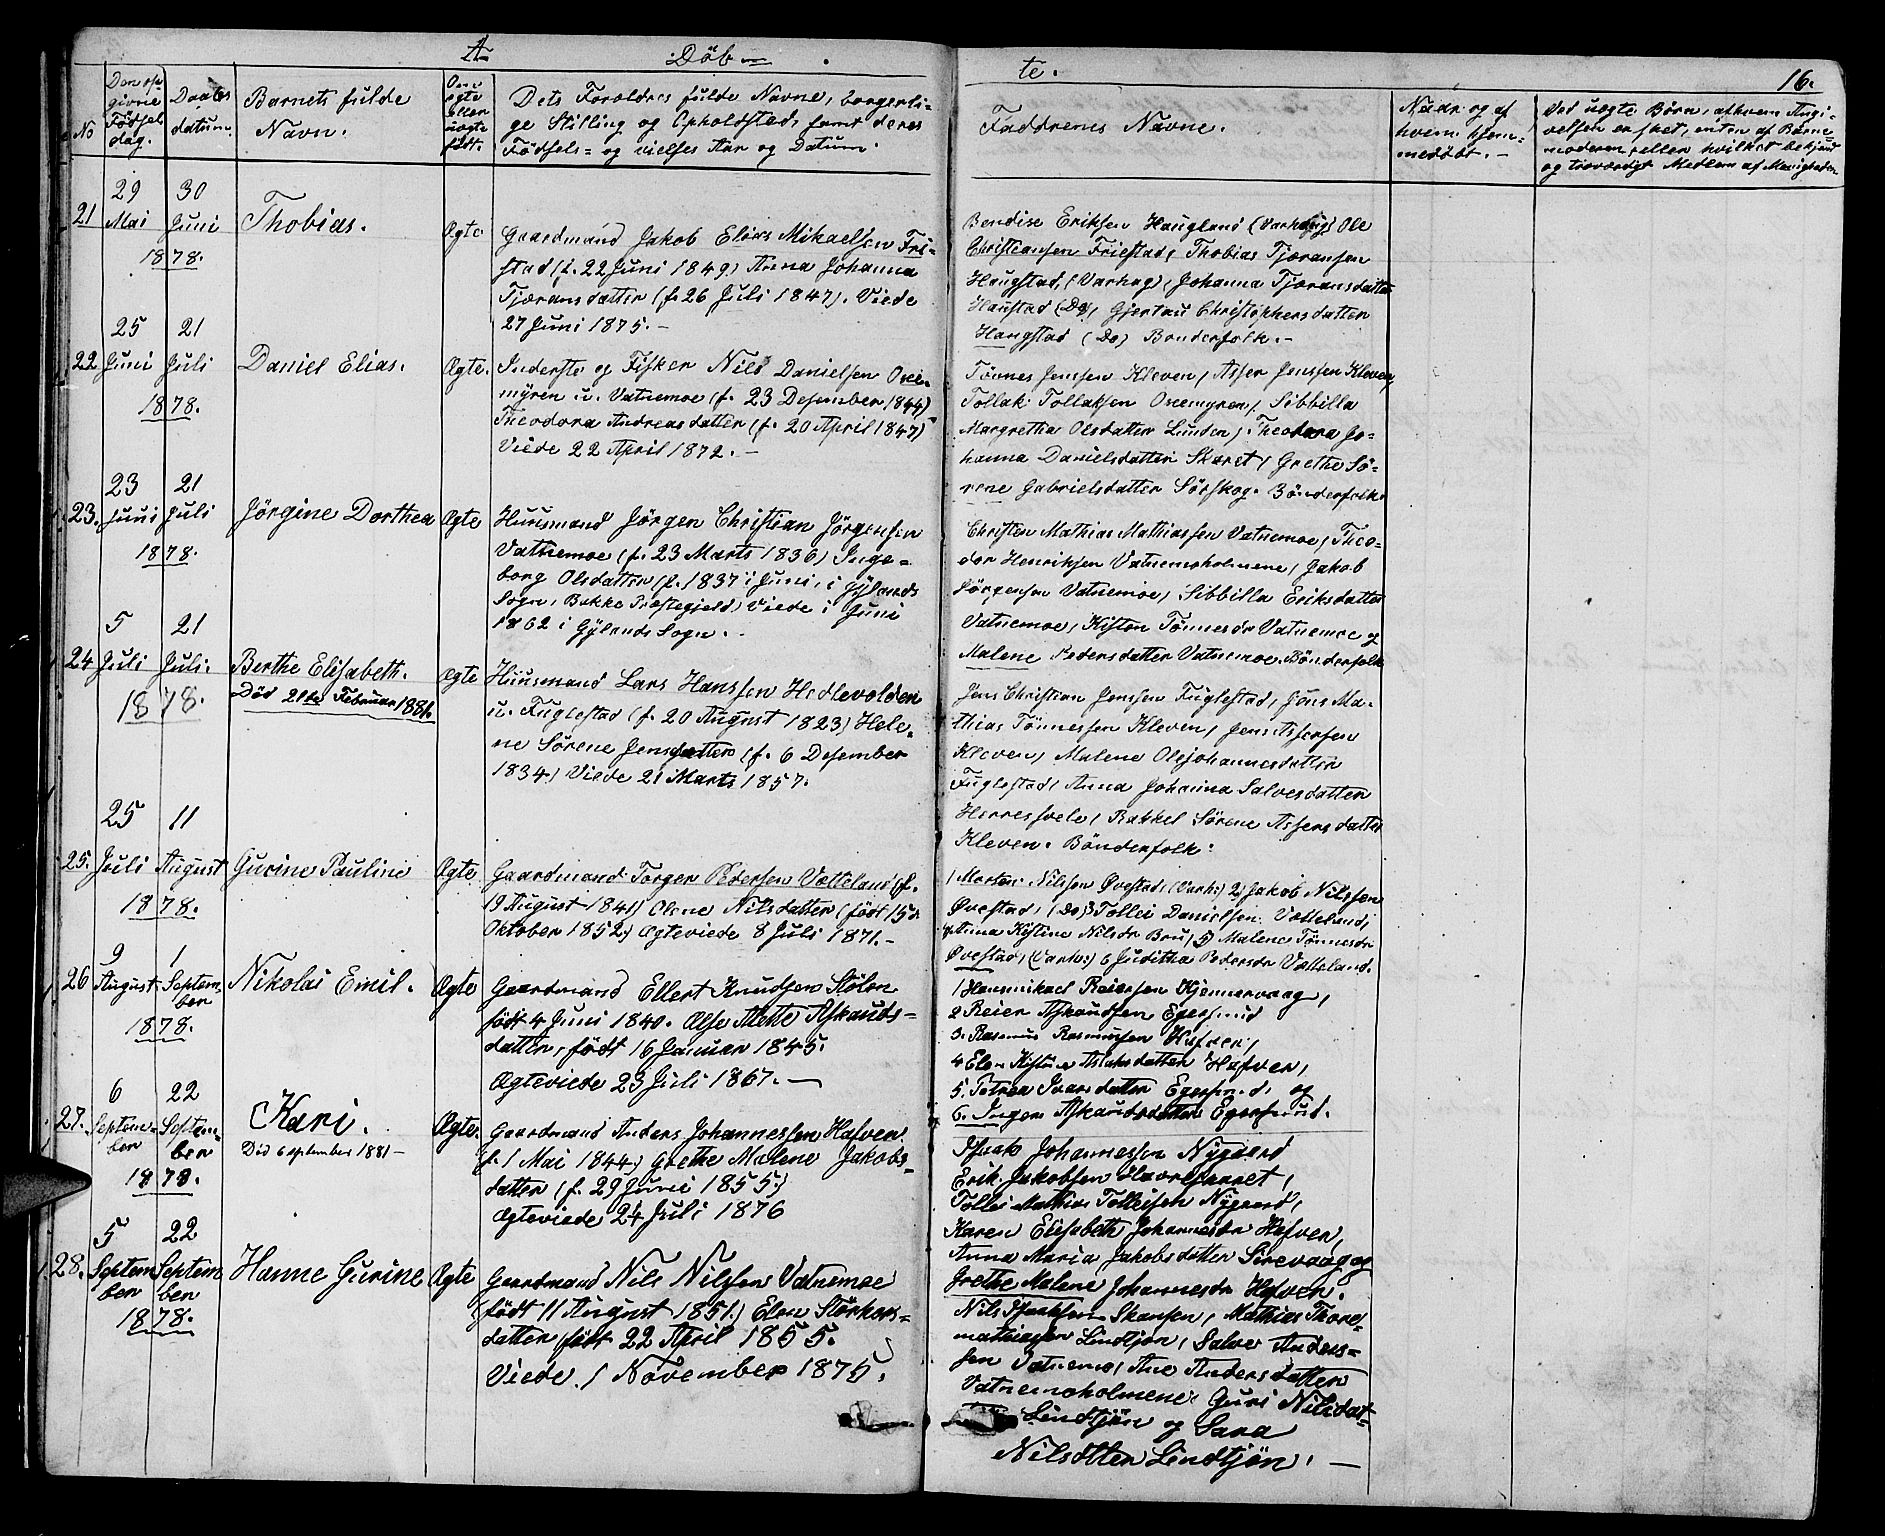 A
Döb-
te.
16.
No
Den opgivne Födselsdag.
Daabsdatum.
Barnets fulde
Navn.
Om ægte eller uægte födt.
Dets Foroldres fulde Navne, borgerli-
ge Stilling og Opholdsted, samt deres
Födsels- og vielses Aar og Datum.
Faddrenes Navne.
Naar og af
hvem hjem-
medöbt. -
Ved uægte Börn, af hvem Angi-
velsen er skeet, enten af Barne-
moderen, eller hvilket bekjend
og troværdigt Medlem af Menigheden
21
29
Mai
30
Juni
1878.
Thobias.
Ægte
Gaardmand Jakob Elias Mikaelsen Fri-
stad (f. 22 Juni 1849) Anna Johanna
Tjæransdatter (f. 26 Juli 1847). Viede
27 Juni 1875. -
Bendise Eriksen Haugland (Varhaug) Ole
Christiansen Friestad, Thobias Tjæransen
Haugstad, (Varhag), Johanna Tjæransdatter
Haustad (Do), Gjertrui Christophersdatter
Haugstad (Do) Bonderfolk. -
22
25
Juni
21
Juli
1878.
Daniel Elias.
Ægte.
Inderste og Fisker Nils Danielsen Ore-
myren u. Vatnemoe (f. 23 Desember 1844)
Theodora Andreasdatter (f. 20 April 1847)
Viede 22 April 1872. -
Tönnes Jenssen Kleven, Asser Jenssen Kleven,
Tollak Tollaksen Oremyren, Sibbilla
Margretha Olsdatter Lunden, Theodora Jo-
hanna Danielsdatter Skaret, Grethe Sö-
rene Gabrielsdatter Sörskog. Bönderfolk.
23.
23
Juni
21
Juli
1878.
Jörgine Dorthea
Ægte
Huusmand Jörgen Christian Jörgensen
Vatnemoe (f. 23 Marts 1836) Inge-
borg Olsdatter (f. 1837 i Juni, i Gylands
Sogn, Bakke Præstegjeld) Viede i Juni
1862 i Gylands Sogn. -
Christen Mathias Mathiassen Vatnemoe, Theo-
dor Henriksen Vatnemoholmene, Jakob
Jörgensen Vatnemoe, Sibbilla Eriksdatter
Vatnemoe, Kisten Tönnesdr Vatnemoe og
Malene Pedersdatter Vatnemoe. Bönderfolk
24
5
Juli
21
Juli.
1878.
Berthe Elisabeth.
Död 21de Februar 1881.
Ægte
Huusmand Lars Hanssen Hedlevolden
u. Fuglestad (f. 20 August 1823) Hele-
ne Sörene Jensdatter (f. 6 Desember
1834) Viede 21 Marts 1857.
Jens Christian Jenssen Fuglestad, Jens Ma-
thias Tönnessen Kleven, Jens Assersen
Kleven, Malene Olejohannesdatter
Fuglestad, Anna Johanna Salvesdatter
Herresvele, Rakkel Sörene Assersdatter
Kleven. Bönderfolk.
25.
25
Juli
11
August
1878.
Gurine Pauline
Ægte
Gaardmand Torger Pedersen Vætteland (f.
19 August 1841) Olene Nilsdatter (födt 15de
Oktober 1852.) Ægteviede 8 Juli 1871. -
1 Morten Nilssen Øvestad, (Varh:) 2) Jakob Nilssen
Øvestad, (Do) 3 Tollei Danielsen Vætteland,
4 Anna Kistine Nilsdr Bru, 5) Malene Tönnesdr
Øvestad, (Varh:) 6 Juditha Pedersdr Vætteland.
26
9
August
1
Septem-
ber
1878.
Nikolai Emil.
Ægte
Gaardmand Ellert Knudsen Stölen
födt 4 Juni 1840. Else Mette Askauds-
datter, födt 16 Januar 1845.
Ægteviede 23 Juli 1867. -
1 Hansmikael Reiersen Kjennervaag,
2 Reier Askaudsen Egersund
3. Rasmus Rasmussen Hafver,
4 Elen Kistine Aslaksdatter Hafver,
5. Petrea Ivarsdatter Egersund, og
6. Inger Askaudsdatter Egersund.
27.
6
Septem-
ber
22
Septem-
ber
1878.
Kari.
Död 6 september 1881 -
Ægte.
Gaardmand Anders Johannessen Hafver
(f. 1 Mai 1844) Grethe Malene Jakobs-
datter (f. 29 Juni 1855)
Ægteviede 24 Juli 1876
Isaak Johannessen Nygaard
Erik Jakobsen Havresparret,
Tollei Mathias Tolleisen Nygaard,
Karen Elisabeth Johannesdr Hafver,
Anna Maria Jakobsdatter Sirevaag og
Grethe Malene Johannesdr Hafver.
28.
5
Septem
ber
22
Septem
ber
1878.
Hanne Gurine
Ægte
Gaardmand Nils Nilssen Vatnemoe
(födt 11 August 1851.) Elen Störkers-
datter, födt 22 April 1855.
Viede 1 November 1875.
Nils Isaksen Skansen, Mathias Thore-
mathiassen Lindtjön, Salve Anders-
sen Vatnemo, Ane Andersdatter
Vatnemoholmene, Guri Nilsdat-
Lindtjön og Sara
Nilsdtter Lindtjön. -